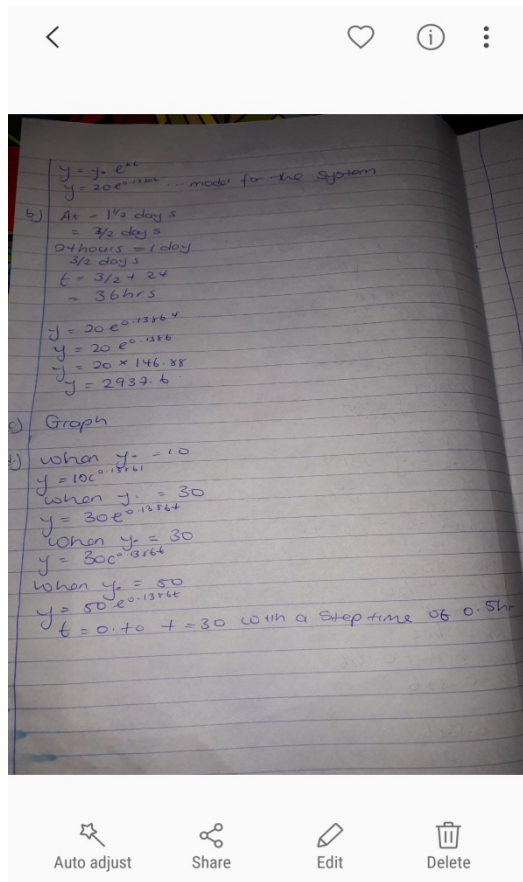 y = y₀ e^kt
y = 20e^0.1386t ... model for the system
b) At = 1 1/2 days
= 3/2 days
24hours = 1 day
3/2 days
t = 3/2 + 24
= 36hrs
y = 20 e^0.1386t
y = 20 e^0.1386
y = 20 × 146.88
y = 2937.6
c) Graph
when y₀ = 10
y = 10e^0.1386t
when y₀ = 30
y = 30e^0.1386t
when y₀ = 30
y = 30e^0.1386t
when y₀ = 50
y = 50 e^0.1386t
t = 0. to t = 30 with a step time of 0.5hr
Auto adjust Share Edit Delete